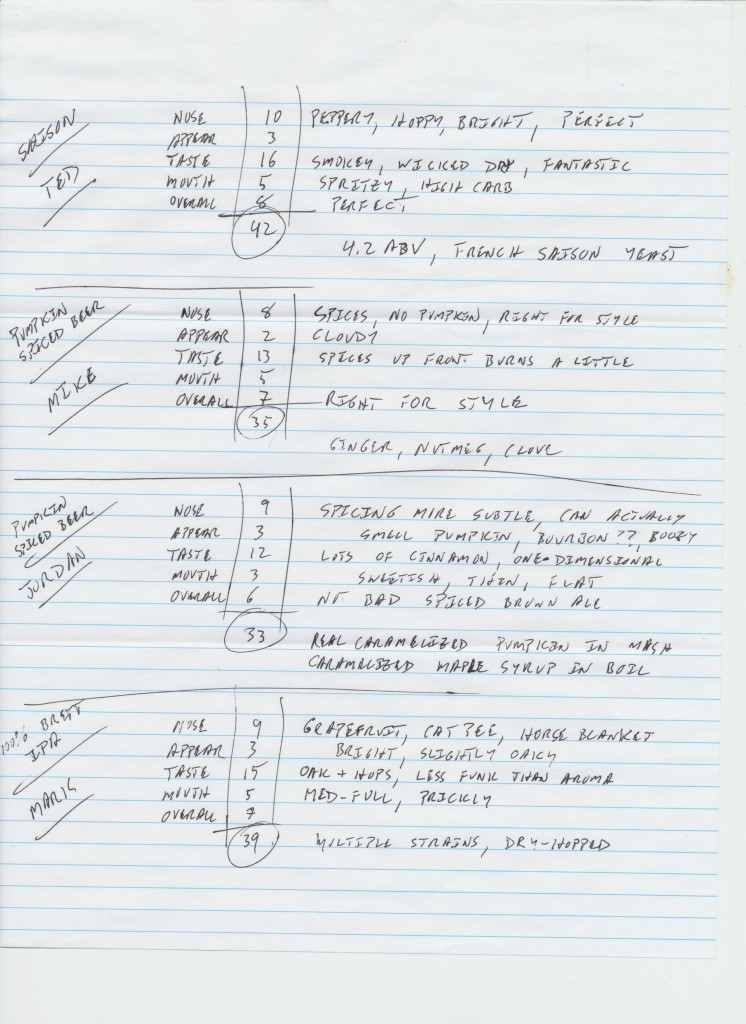 SAISON
TED
NOSE 10 PEPPERY, HOPPY, BRIGHT, PERFECT
APPEAR 3
TASTE 16 SMOKEY, WICKED DRY, FANTASTIC
MOUTH 5 SPRITZY, HIGH CARB
OVERALL 8 PERFECT
42
4.2 ABV, FRENCH SAISON YEAST
PUMPKIN
SPICED BEER
MIKE
NOSE 8 SPICES, NO PUMPKIN, RIGHT FOR STYLE
APPEAR 2 CLOUDY
TASTE 13 SPICES UP FRONT BURNS A LITTLE
MOUTH 5
OVERALL 7 RIGHT FOR STYLE
35
GINGER, NUTMEG, CLOVE
PUMPKIN
SPICED BEER
JORDAN
NOSE 9 SPICING MIRE SUBTLE, CAN ACTUALLY
APPEAR 3 SMELL PUMPKIN, BOURBON?? BOOZY
TASTE 12 LOTS OF CINNAMON, ONE-DIMENSIONAL
MOUTH 3 SWEETISH, THIN, FLAT
OVERALL 6 NOT BAD SPICED BROWN ALE
33
REAL CARAMELIZED PUMPKIN IN MASH
CARAMELIZED MAPLE SYRUP IN BOIL
100% BRETT
IPA
MARIS
NOSE 9 GRAPEFRUIT, CAT PEE, HORSE BLANKET
APPEAR 3 BRIGHT, SLIGHTLY OAKY
TASTE 15 OAK + HOPS, LESS FUNK THAN AROMA
MOUTH 5 MED-FULL, PRICKLY
OVERALL 7
39
MULTIPLE STRAINS, DRY-HOPPED